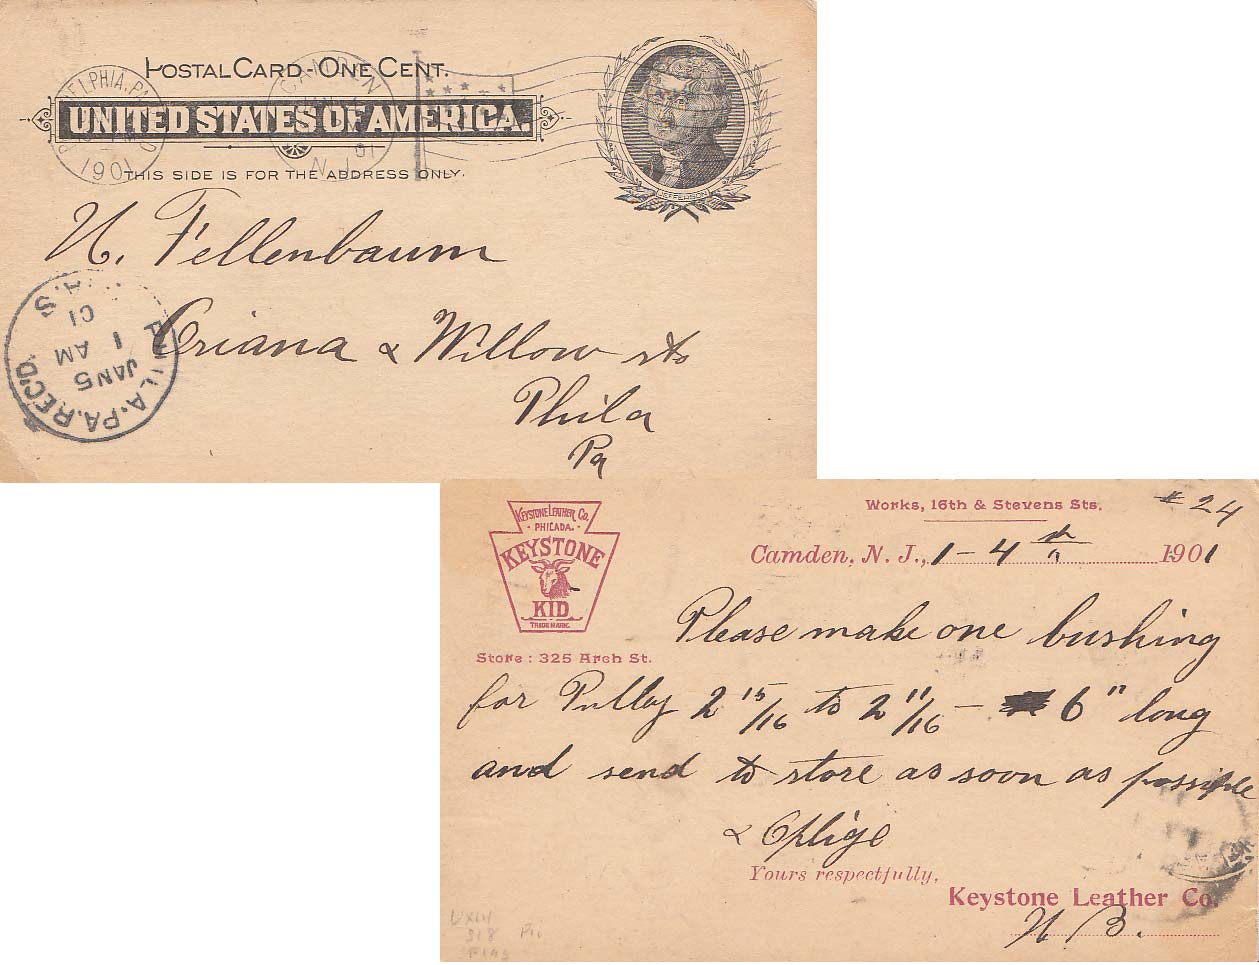 POSTAL CARD - ONE CENT.
UNITED STATES OF AMERICA.
THIS SIDE IS FOR THE ADDRESS ONLY.
JEFFERSON
PHILADELPHIA, PA.
1901
CAMDEN
JAN
01
N.J.
H. Fellenbaum
Oriana & Willow sts
Phila
Pa
PHILA. PA. REC'D.
JAN 5
1 AM
01
A.S
KEYSTONE LEATHER CO.
- PHILADA. -
KEYSTONE
KID
TRADE MARK.
Store : 325 Arch St.
Works, 16th & Stevens Sts.
# 24
Camden, N. J., 1 - 4th 1901
Please make one bushing
for Pulley 2 15/16 to 2 11/16 - 6" long
and send to store as soon as possible
& Oblige
Yours respectfully,
Keystone Leather Co.
H B.
318